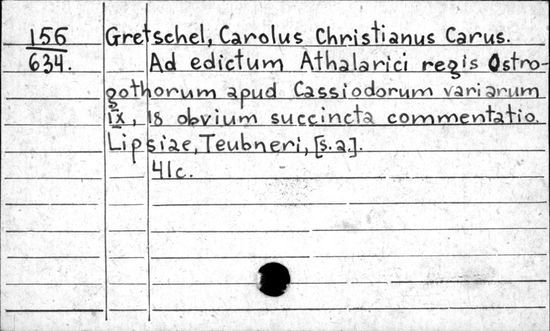 156 Gretschel, Carolus Christianus Carus.
634. Ad edictum Athalarici regis Ostro-
gothorum apud Cassiodorum variarum
ix, 18 obvium succincta commentatio.
Lipsiae, Teubneri, [s.a.].
41c.